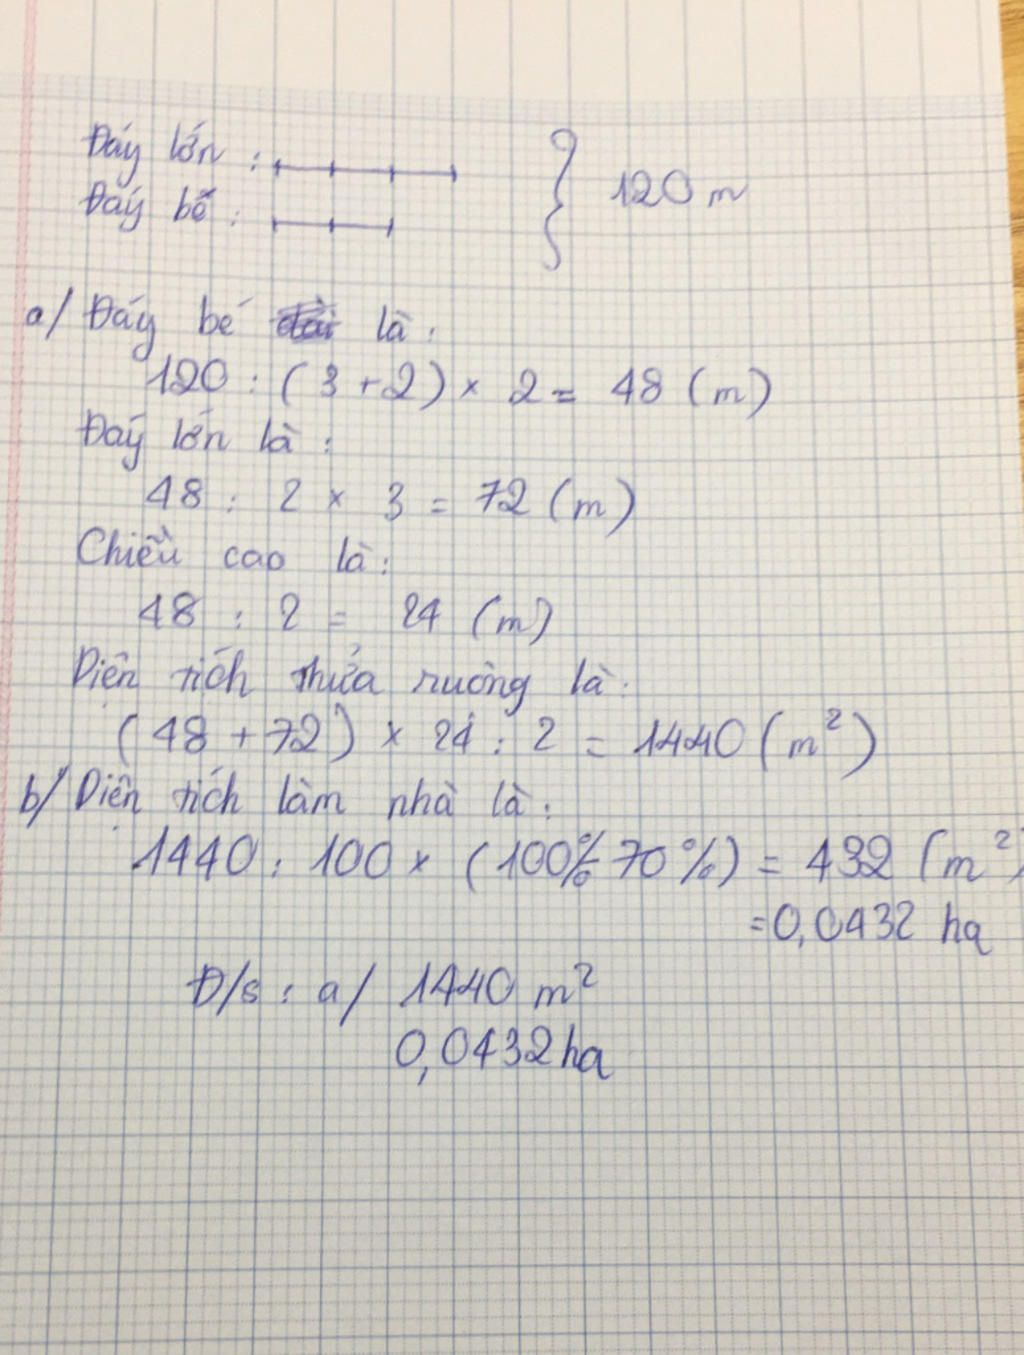 Đáy lớn :
120 m
Đáy bé :
a/ Đáy bé là :
120 : ( 3 + 2 ) × 2 = 48 ( m )
Đáy lớn là :
48 : 2 × 3 = 72 ( m )
Chiều cao là :
48 : 2 = 24 ( m )
Diện tích thửa ruộng là :
( 48 + 72 ) × 24 : 2 = 1440 ( m² )
b/ Diện tích làm nhà là :
1440 : 100 × ( 100% - 70 % ) = 432 ( m² )
= 0,0432 ha
Đ/s : a/ 1440 m²
0,0432 ha